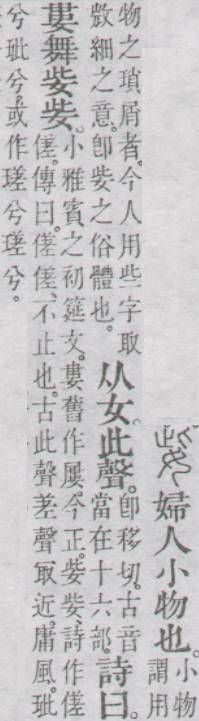 姕 婦人小物也。
小物
謂用
物之瑣屑者。今人用些字取
㪚細之意。卽姕之俗體也。
从女。此聲。
卽移切。古音
當在十六部。
詩曰。
婁舞姕姕。
小雅賓之初筵文。婁舊作屢。今正。姕姕、詩作傞
傞。傳曰。傞傞、不止也。古此聲差聲㝡近。庸風。玼
兮玼兮。或作瑳兮瑳兮。